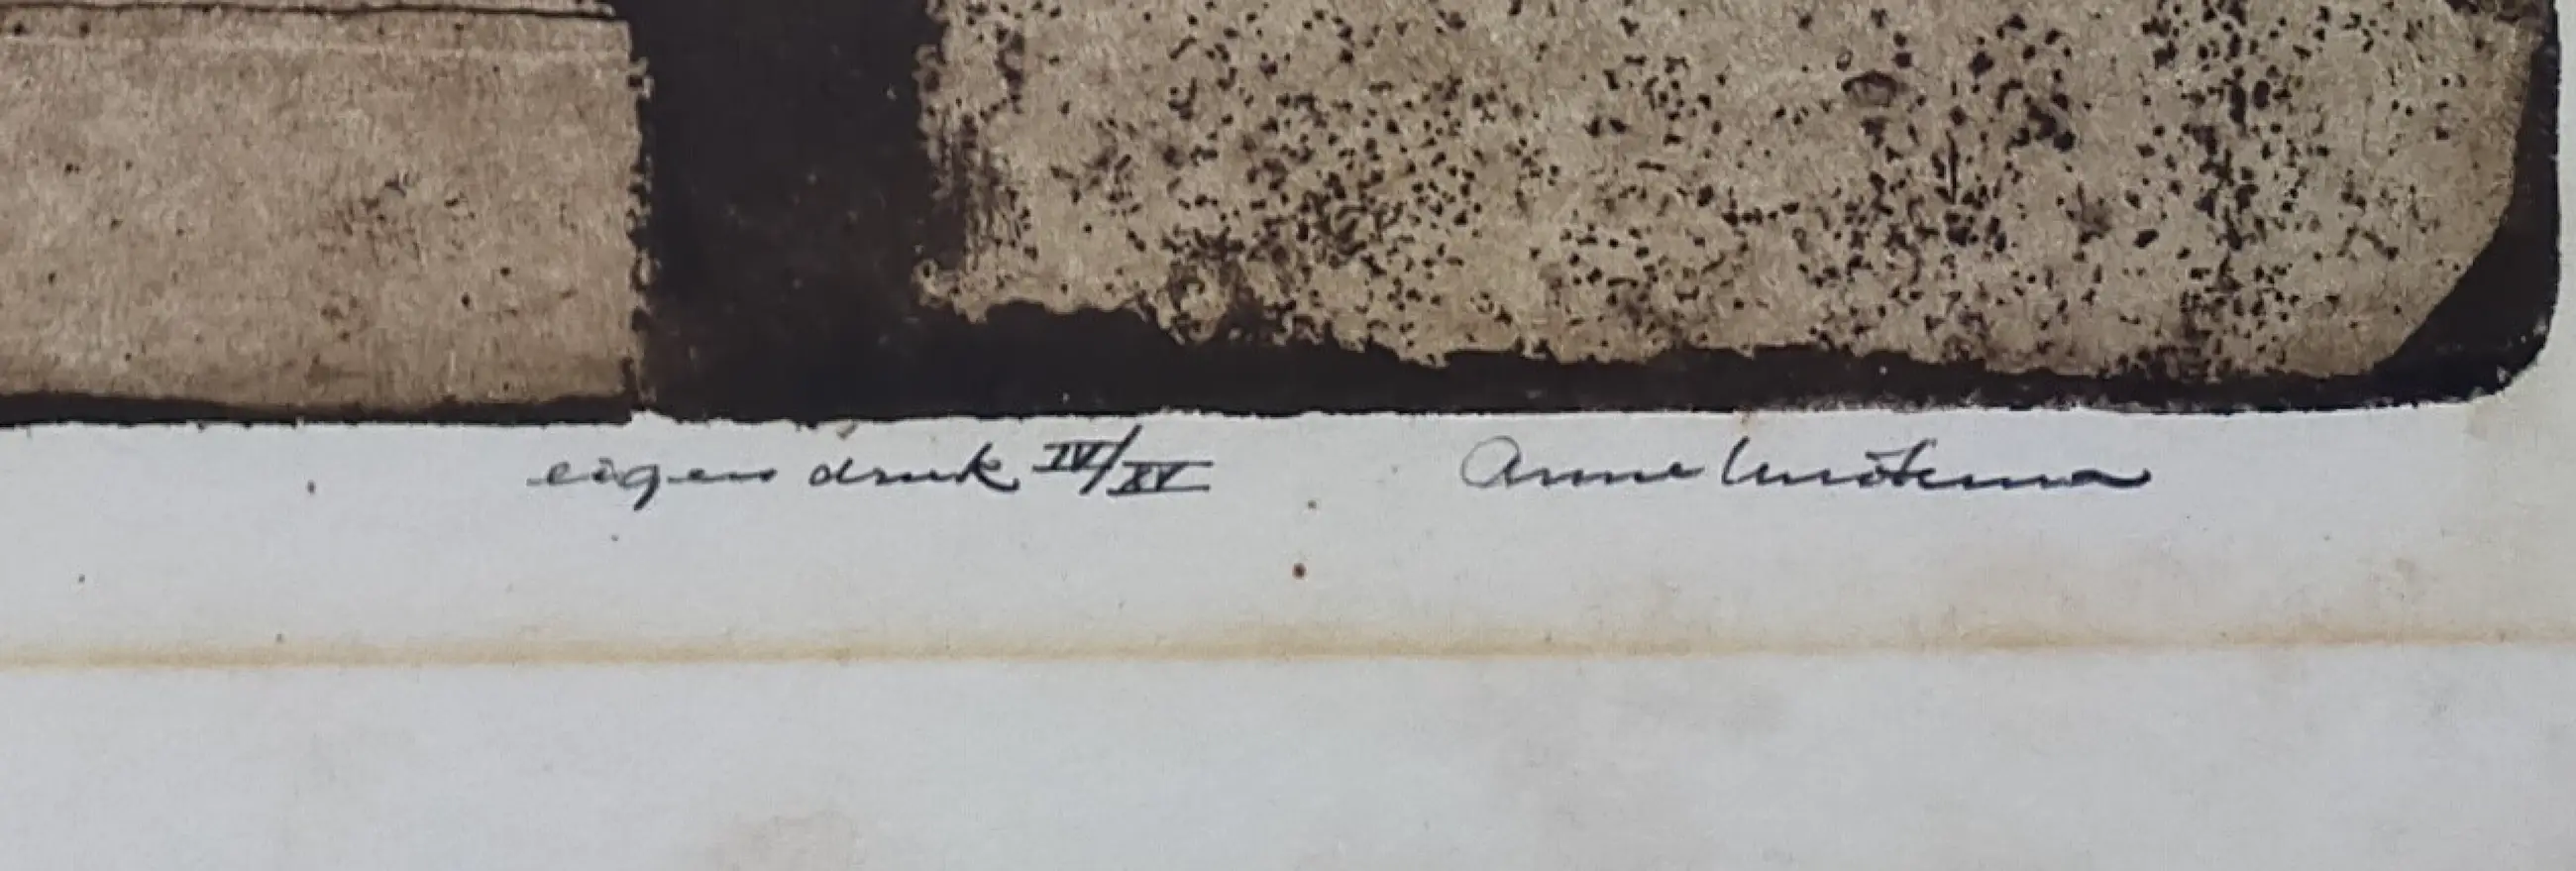 eigen druk IV/XV Anne